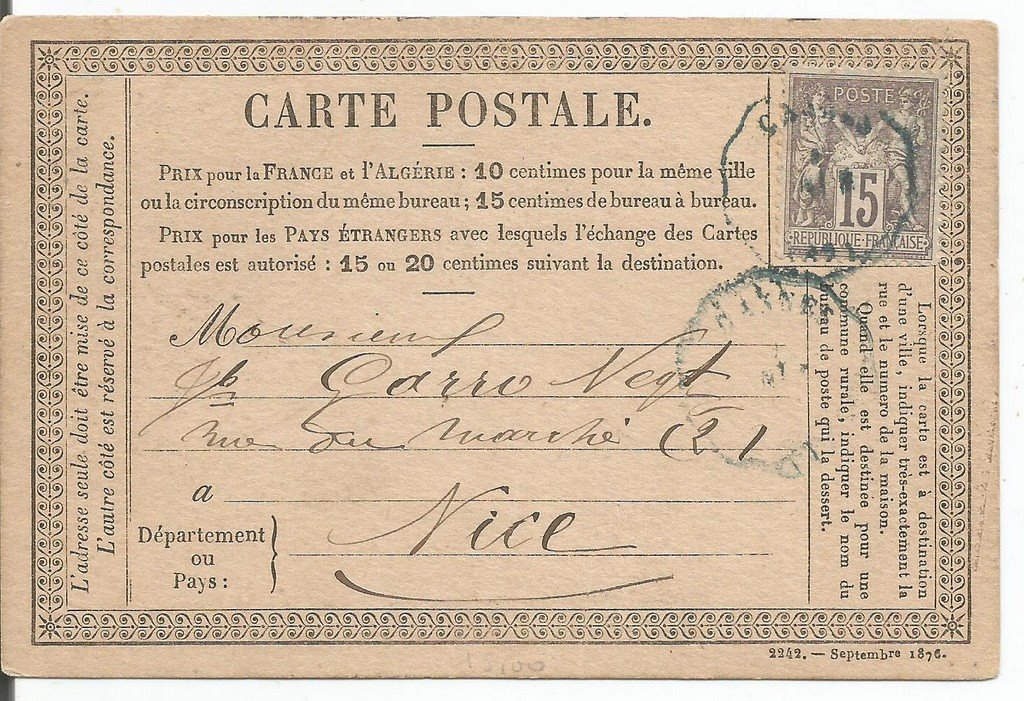 CARTE POSTALE.
PRIX pour la FRANCE et l'ALGÉRIE : 10 centimes pour la même ville
ou la circonscription du même bureau ; 15 centimes de bureau à bureau.
PRIX pour les PAYS ÉTRANGERS avec lesquels l'échange des Cartes
postales est autorisé : 15 ou 20 centimes suivant la destination.
POSTE
15
RÉPUBLIQUE FRANÇAISE
Monsieur
Jh Carro Negt
rue du Marché 21
a
Nice
Département
ou
Pays :
L'adresse seule doit être mise de ce côté de la carte.
L'autre côté est réservé à la correspondance.
Lorsque la carte est à destination
d'une ville, indiquer très-exactement la
rue et le numéro de la maison.
Quand elle est destinée pour une
commune rurale, indiquer le nom du
bureau de poste qui la dessert.
2242. — Septembre 1876.